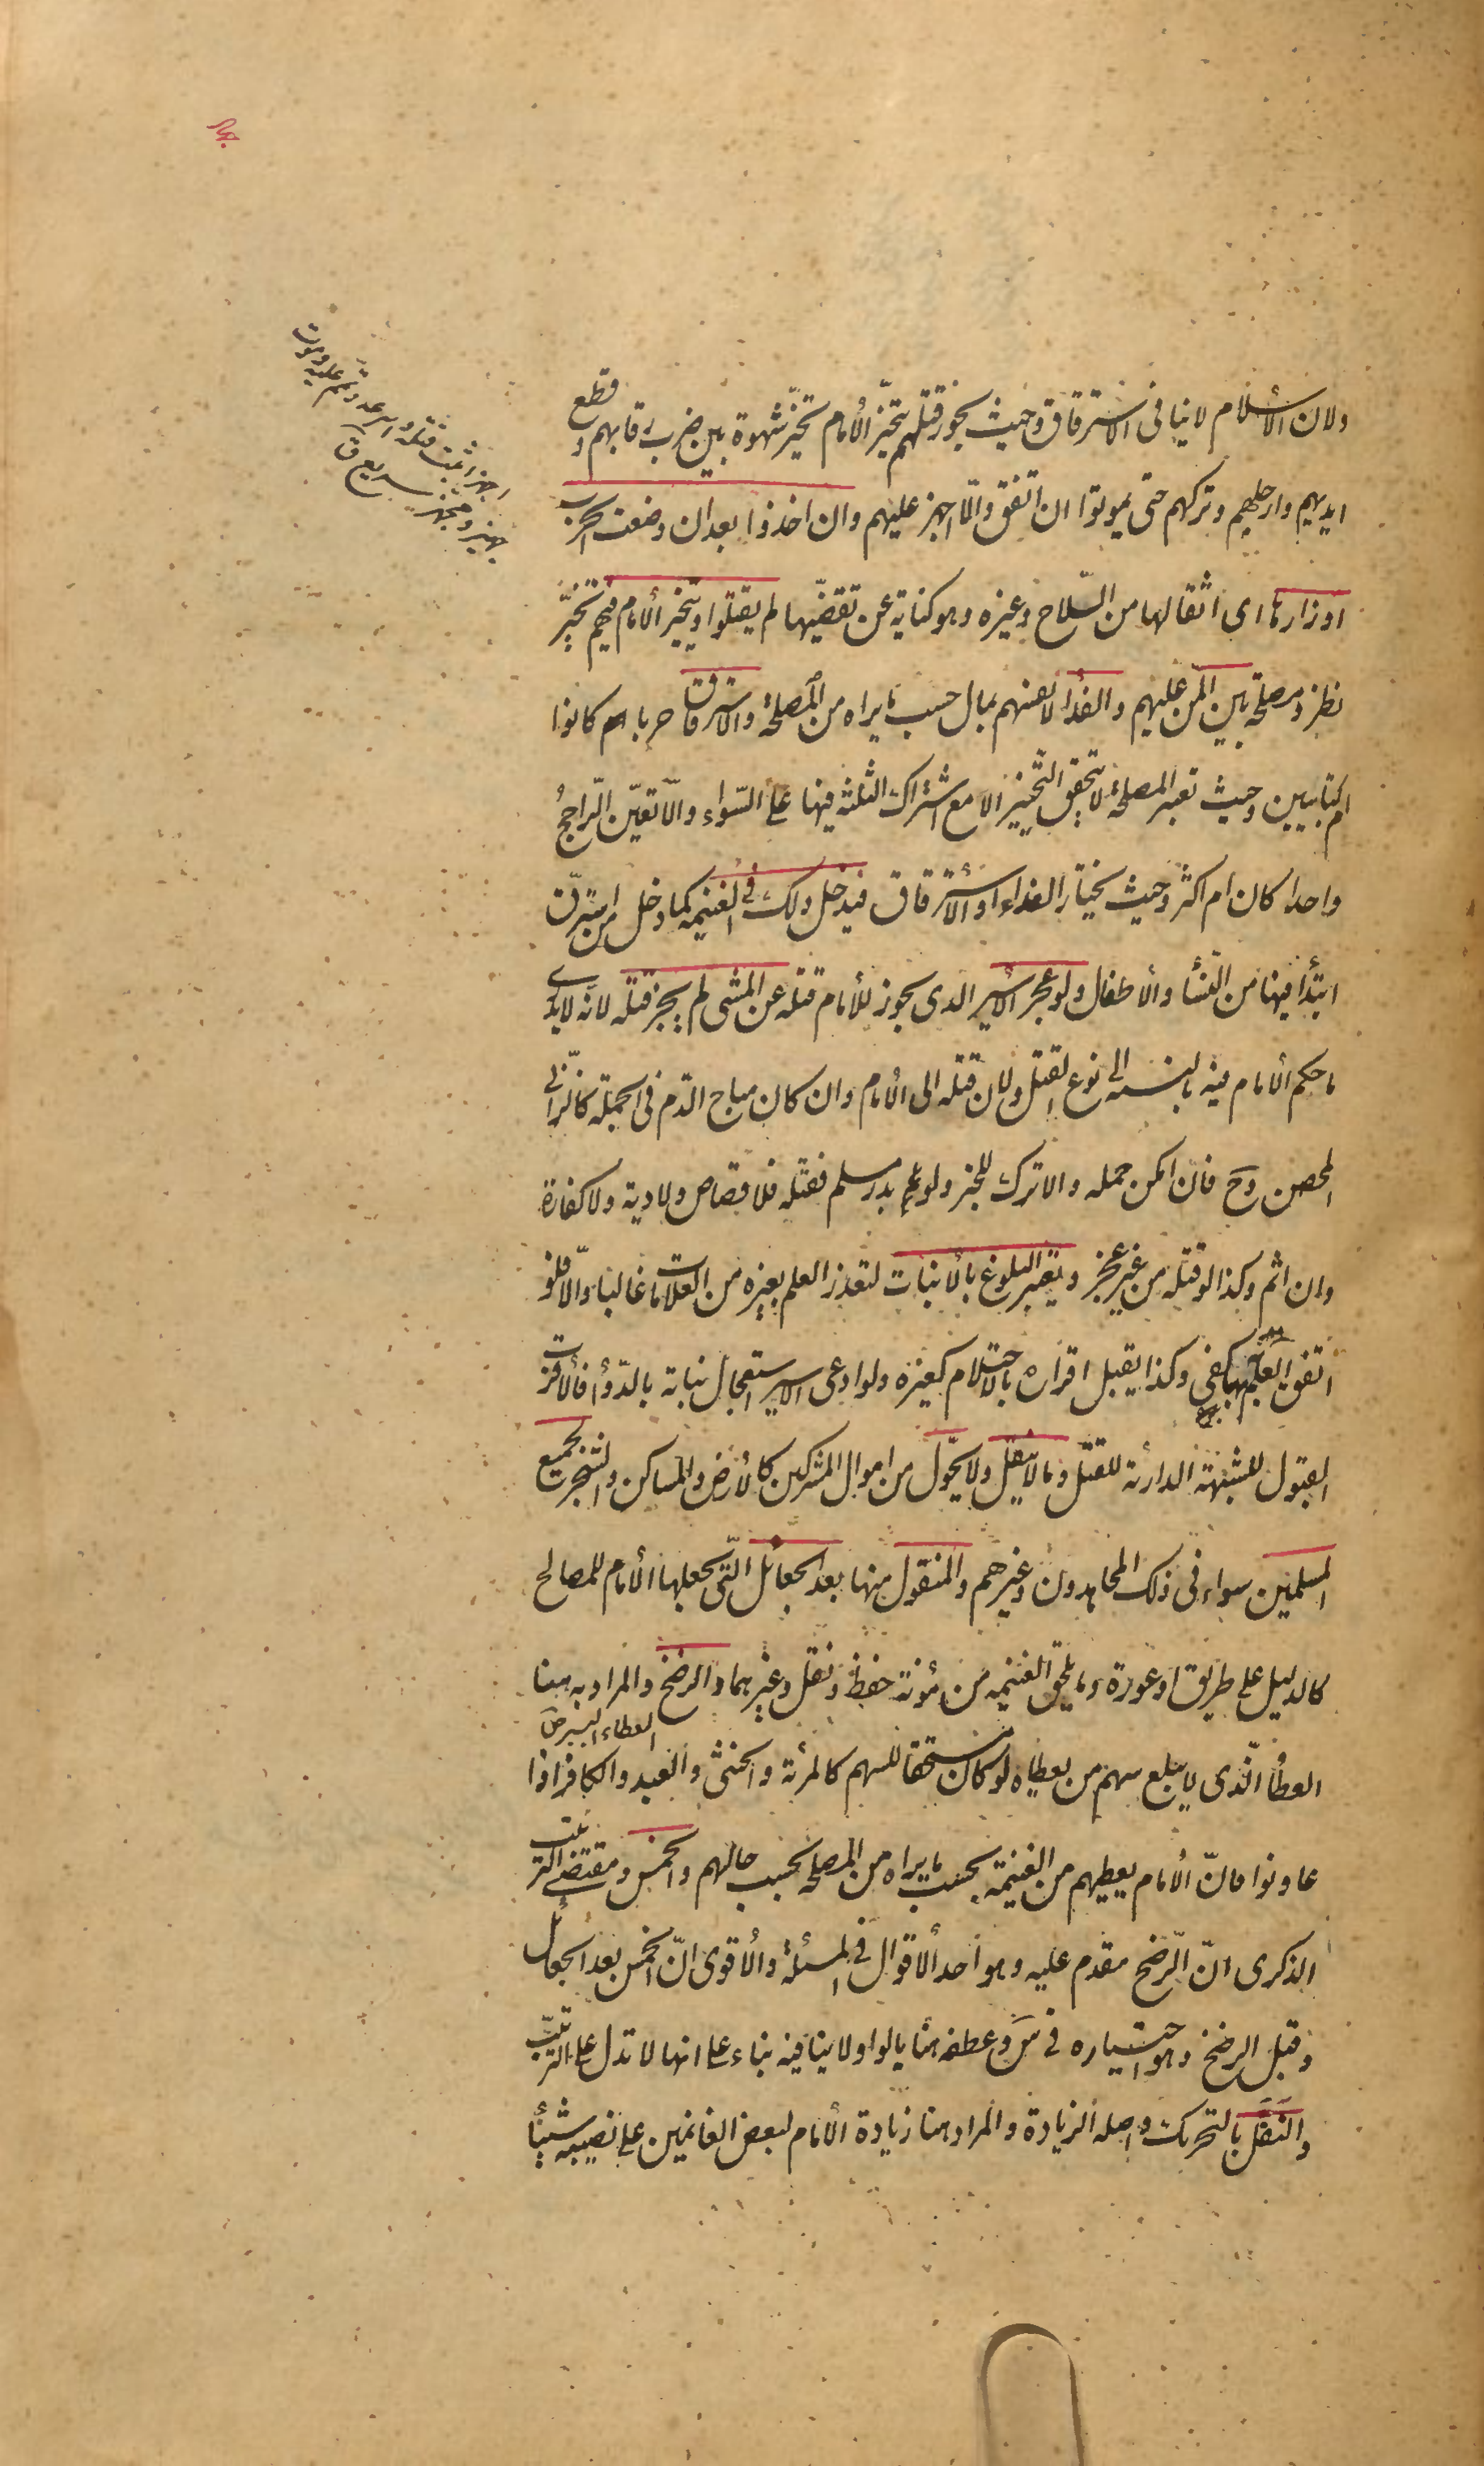 ولان الأسلام لا ينافى الاسترقاق وحيث يجوز قتلهم يتخيّر الأمام تخيّر شهوة بين ضرب رقابهم و قطع
ايديهم وارجلهم وتركهم حتى يموتوا ان اتفق والّا اجهز عليهم وان اخذوا بعد ان وضعت الحرب
اوزارها اى اثقالها من السّلاح وغيره وهو كناية عن تقضّيها لم يقتلوا ويتخير الأمام فيهم تخيّر
نظر ومصلحة بين المنّ عليهم والفداء لانفسهم بمال حسب ما يراه من المصلحة والاسترقاق حربا كانوا
ام كتابيين وحيث تعتبر المصلحة لا يتحقق التخيير الا مع اشتراك الثلثة فيها على السّواء والّا تعيّن الرّاجح
واحدا كان ام اكثر وحيث يختار الفداء او الأسترقاق فيدخل ذلك فى الغنيمه كما دخل من استرقّ
ابتدأ فيها من النسأ والأطفال ولو عجز الأسير الذى يجوز للأمام قتله عن المشى لم يجز قتله لانه لا يدرى
ما حكم الأمام فيه بالنسبه الى نوع القتل ولان قتله الى الأمام وان كان مباح الدّم فى الجملة كالزّانى
المحصن وح فان امكن حمله والا ترك للخبر ولو بدر مسلم فقتله فلا قصاص ولا دية ولا كفارة
وان اثم وكذا لو قتله من غير عجز ويعتبر البلوغ بالأنبات لتعذر العلم بغيره من العلامات غالبا والّا فلو
اتفق العلم بها كفى وكذا يقبل اقراره بالاحتلام كغيره ولو ادعى الاسير استعجال نباته بالدّواء فالأقرب
القبول للشبهة الدارئة للقتل وما لا ينقل ولا يحوّل من اموال المشركين كالأرض والمساكن والشجر لجميع
المسلمين سواء فى ذلك المجاهدون وغيرهم والمنقول منها بعد الجعائل الّتى يجعلها الأمام للمصالح
كالدليل على طريق او عورة وما يلحق الغنيمه من مؤنة حفظ ونقل وغيرهما والرضخ والمراد به هنا
العطاء اليسير ص
العطأ الّذى لا يبلغ سهم من يعطاه لو كان مستحقا للسهم كالمرئة والخنثى والعبد والكافر اذا
عاونوا فانّ الأمام يعطيهم من الغنيمة بحسب ما يراه من المصلحه بحسب حالهم والخمس ومقتضى الترتيب
الذكرى انّ الرّضخ مقدم عليه وهو احد الأقوال فى المسئلة والأقوى انّ الخمس بعد الجعائل
وقبل الرضخ وهو اختياره فى س وعطفه هنا بالواو لا ينافيه بناء على انها لا تدل على الترتيب
والنَفَل بالتحريك واصله الزيادة والمراد هنا زيادة الأمام لبعض الغانمين على نصيبه شيئأ
اجهز اثبت قتله واسرعه وتمم عليه وموت
مجهز وجهيز سريع ق